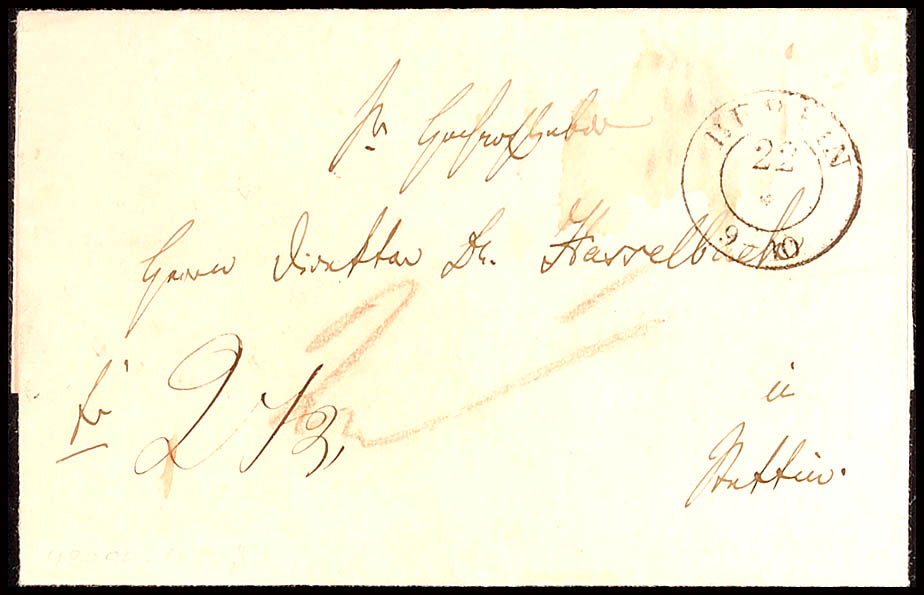 BERLIN
22
9-10
Sr Hochwohlgeboren
Herrn Direktor Dr. Hasselbach
in
fr. 2 1/2,
Stettin.